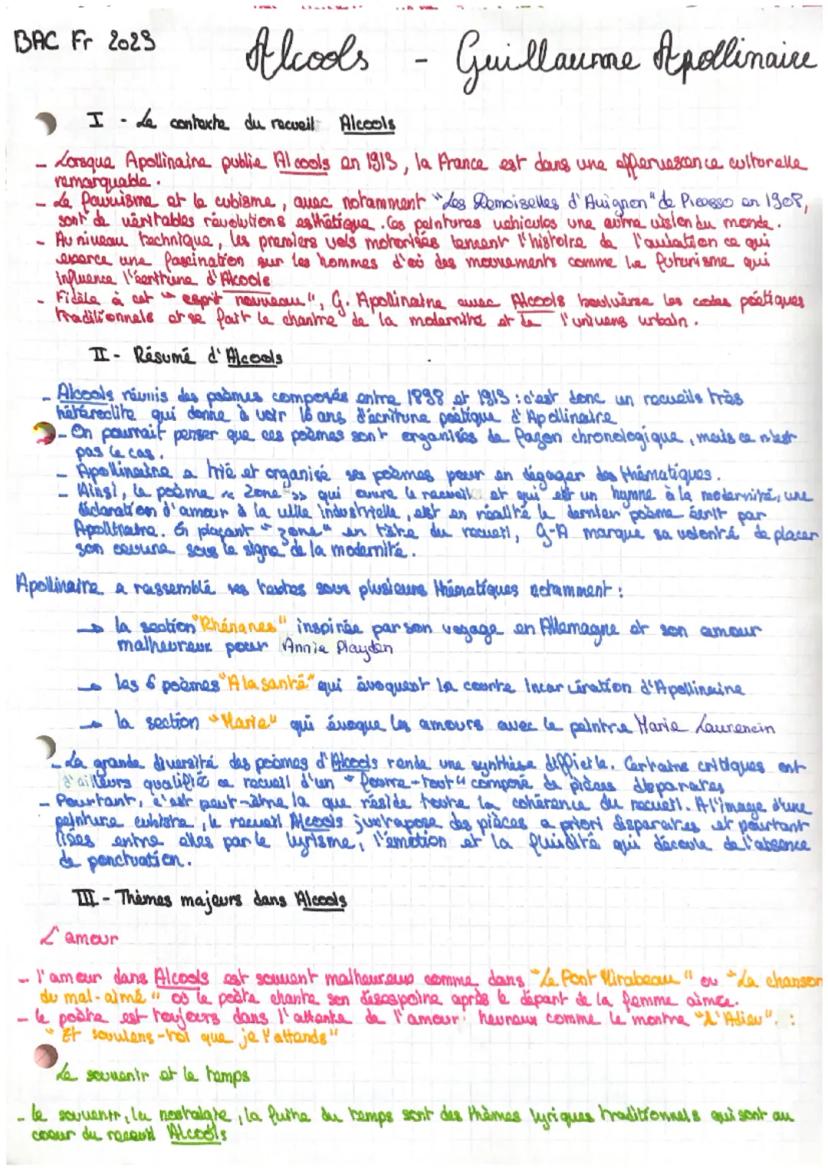 BAC Fr 2023
Alcools - Guillaume Apollinaire
I - Le contexte du recueil Alcools
- Lorsque Apollinaire publie Alcools en 1913, la France est dans une effervescence culturelle
remarquable.
- Le fauvisme et le cubisme, avec notamment "Les Demoiselles d'Avignon" de Picasso en 1908,
sont de véritables révolutions esthétique. Ces peintures véhicules une autre vision du monde.
- Au niveau technique, les premiers vols motorisés lancent l'histoire de l'aviation ce qui
exerce une fascination sur les hommes d'où des mouvements comme le futurisme qui
influence l'écriture d'Alcools
- Fidèle à cet "esprit nouveau", G. Apollinaire avec Alcools bouleverse les codes poétiques
traditionnels et se fait le chantre de la modernité et de l'univers urbain.
II - Résumé d'Alcools
- Alcools réunis des poèmes composés entre 1898 et 1913 : c'est donc un recueils très
hétéroclite qui donne à voir 16 ans d'écriture poétique d'Apollinaire
- On pourrait penser que ces poèmes sont organisés de façon chronologique, mais ce n'est
pas le cas.
- Apollinaire a trié et organisé ses poèmes pour en dégager des thématiques.
- Ainsi, le poème « Zone » qui ouvre le recueil et qui est un hymne à la modernité, une
déclaration d'amour à la ville industrielle, est en réalité le dernier poème écrit par
Apollinaire. En plaçant "zone" en tête du recueil, G-A marque sa volonté de placer
son oeuvre sous le signe de la modernité.
Apollinaire a rassemblé ses textes sous plusieurs thématiques notamment :
→ la section "Rhénanes" inspirée par son voyage en Allemagne et son amour
malheureux pour Annie Playden
→ les 6 poèmes "A la santé" qui évoquent la courte incarcération d'Apollinaire
→ la section "Marie" qui évoque les amours avec le peintre Marie Laurencin
- La grande diversité des poèmes d'Alcools rends une synthèse difficile. Certains critiques ont
d'ailleurs qualifié ce recueil d'un "fourre-tout" composé de pièces disparates
- Pourtant, c'est peut-être la que réside toute la cohérence du recueil. A l'image d'une
peinture cubiste, le recueil Alcools juxtapose des pièces a priori disparates et pourtant
liées entre elles par le lyrisme, l'émotion et la fluidité qui découle de l'absence
de ponctuation.
III - Thèmes majeurs dans Alcools
L'amour
- l'amour dans Alcools est souvent malheureux comme dans "Le Pont Mirabeau" ou "La chanson
du mal-aimé" où le poète chante son désespoire après le départ de la femme aimée.
- le poète est toujours dans l'attente de l'amour heureux comme le montre "L'Adieu" :
"Et souviens-toi que je t'attends"
Le souvenir et le temps
- le souvenir, la nostalgie, la fuite du temps sont des thèmes lyriques traditionnels qui sont au
coeur du recueil Alcools